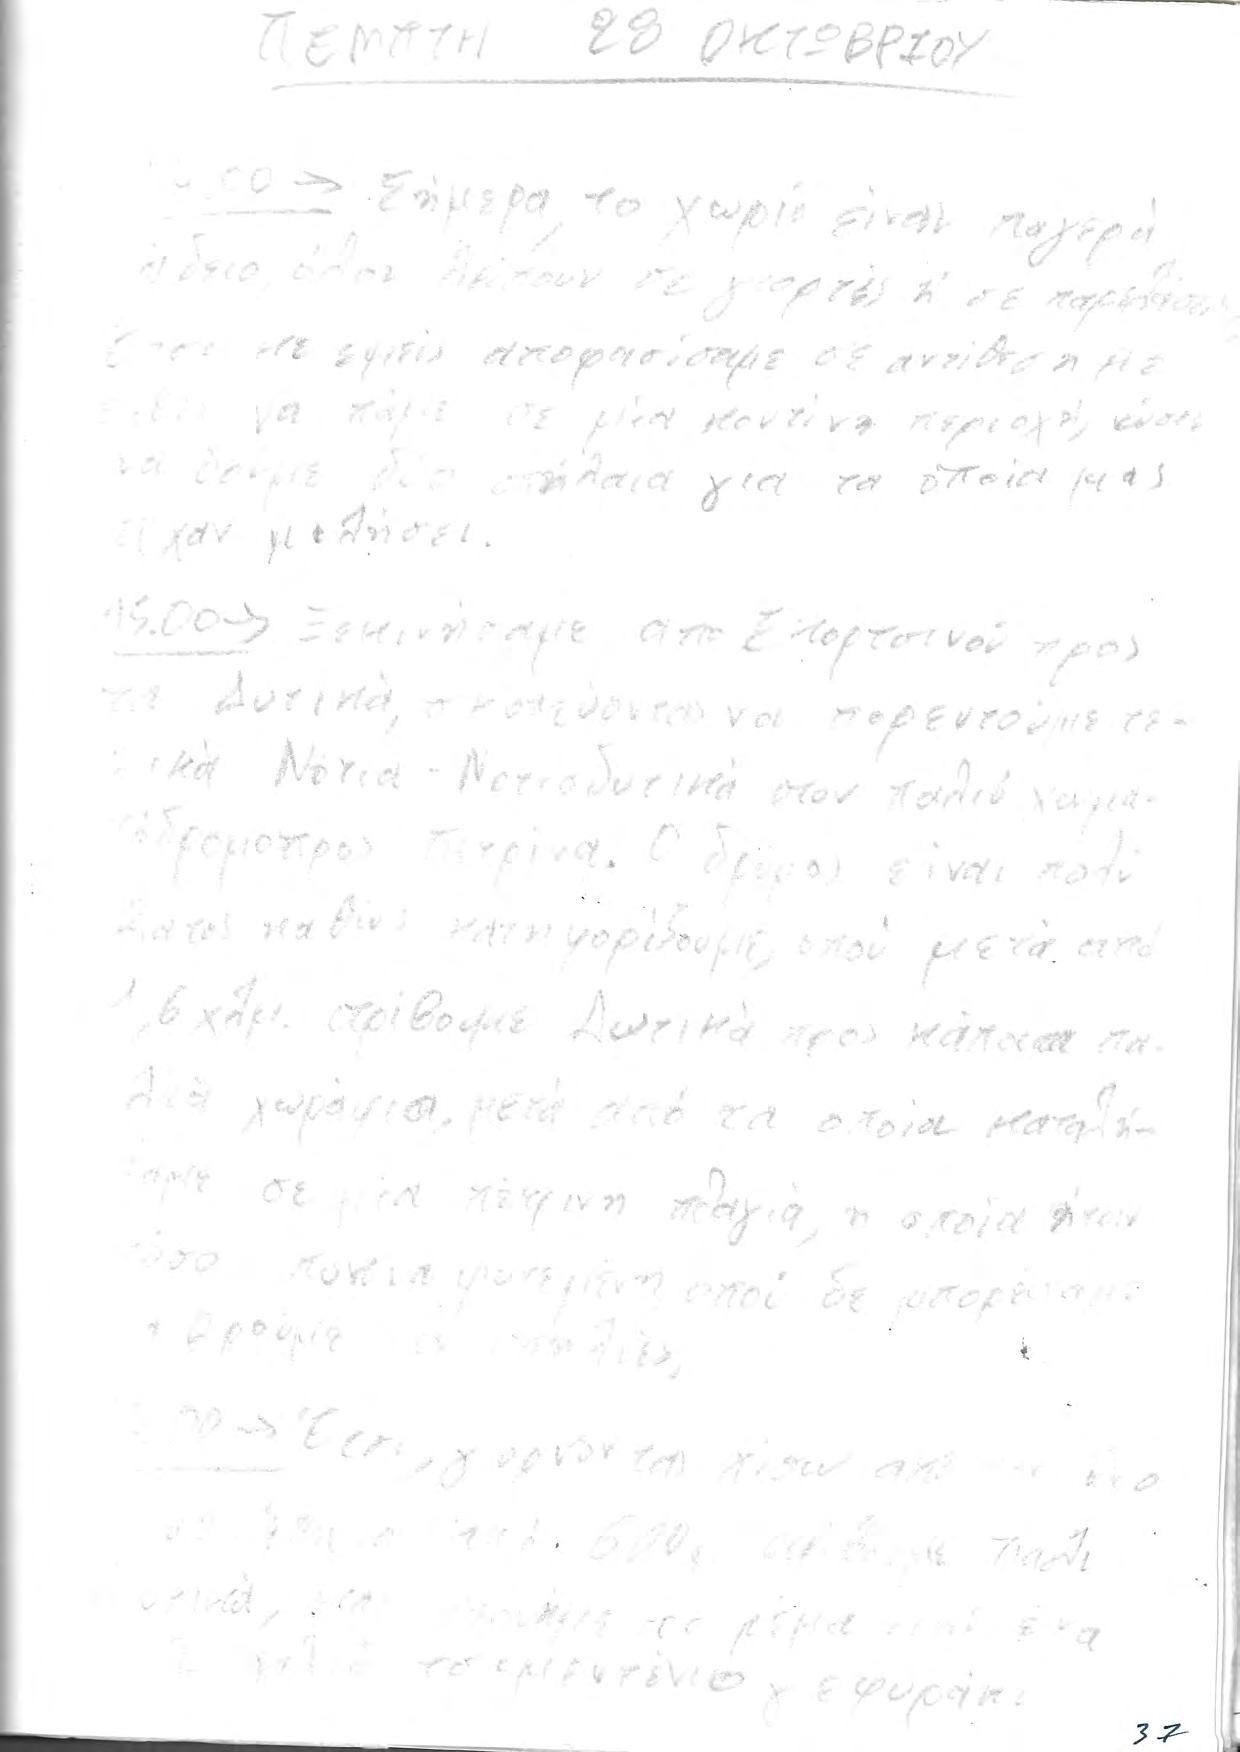 ΠΕΜΠΤΗ 28 ΟΚΤΩΒΡΙΟΥ
.00 → Σήμερα, το χωριό είναι παγερά
άδειο, όλοι λείπουν σε γιορτές ή σε παρελάσεις
Έτσι κε εμείς αποφασίσαμε σε αντίθεση με
να πάμε σε μία κοντινή περιοχή,
να δούμε δύο σπήλαια για τα οποία μας
είχαν μιλήσει.
15.00 → Ξεκινήσαμε απο Σπορτσινού προς
τα Δυτικά, σκοπεύοντας να πορευτούμε τε-
λικά Νότια - Νοτιοδυτικά στον παλιό χωμα-
τόδρομο προς Πετρίνα. Ο δρόμος είναι πολύ
βατος καθώς κατηφορίζουμε, οπού μετά από
1,6 χλμ. στρίβομε Δυτικά προς κάποια πα-
λιά χωράφια, μετά από τα οποία καταλή-
ξαμε σε μία πέτρινη πλαγιά, η οποία ήταν
τόσο πυκνα φυτεμένη οπού δε μπορέσαμε
να βρούμε τις σπηλιές.
.00 → Έτσι, γυρνόντας πίσω από
600 στρίβομε πάλι
ρέμα ένα
παλιό τσιμεντένιο γεφυράκι
37